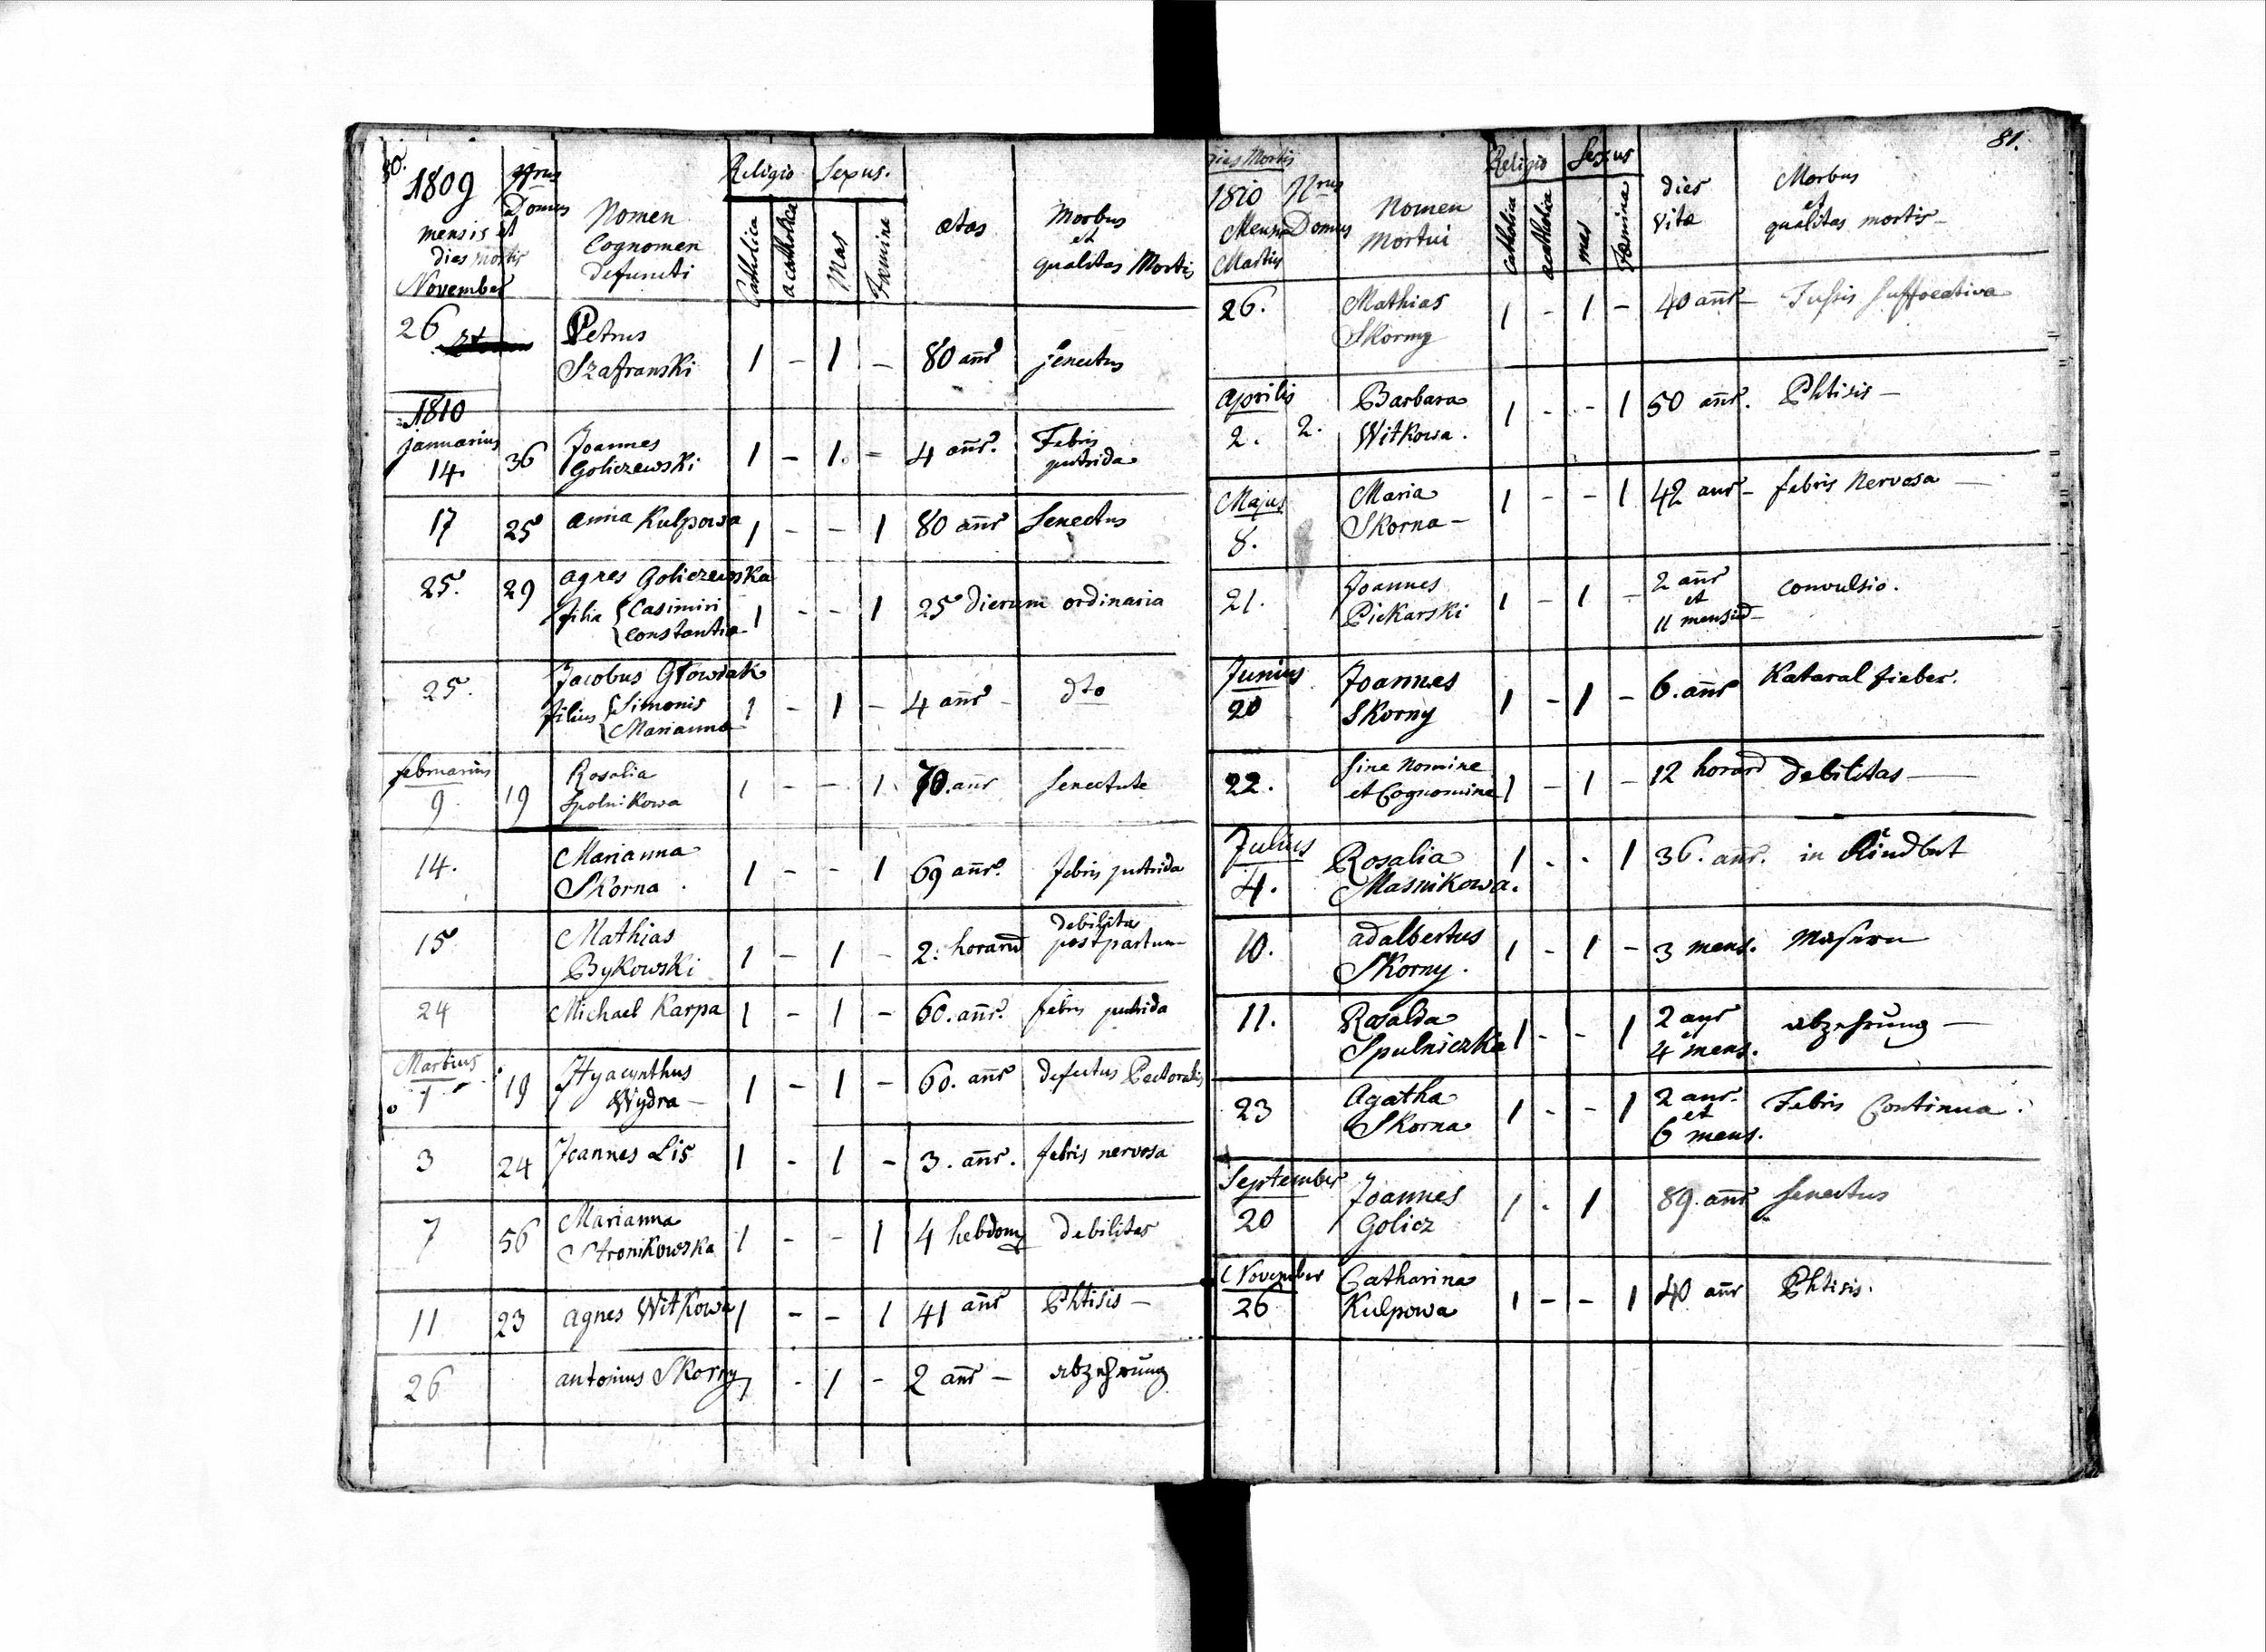 80.
1809 Nrus Religio Sexus.
mensis et Domus Nomen Catholica acatholica Mas Fæmina ætas Morbus
dies mortis Cognomen et
November defuncti qualitas Mortis
26 Petrus
Szafranski 1 - 1 - 80 añr Senectus
1810
Januarius Joannes Febris
14. 36 Goliczewski 1 - 1. - 4 añr. putrida
17 25 Anna Kulpowa 1 - - 1 80 añr Senectus
25. 29 Agnes Goliczewska
filia { Casimiri 1 - - 1 25 Dierum ordinaria
{ Constantiæ
25. Jacobus Głowiak
filius { Simonis 1 - 1 - 4 añr - dto
{ Marianna
februarius Rosalia
9. 19 Spolnikowa 1 - - 1. 70. anr Senectute
14. Marianna
Skorna . 1 - - 1 69 añr. febris putrida
15 Mathias debilita
Bykowski 1 - 1 - 2. horarum post partum
24 Michael Karpa 1 - 1 - 60. añr. febris putrida
Martius Hyacynthus
1 19 Wydra - 1 - 1 - 60. añr defectus Pectoralis
3 24 Joannes Lis 1 - 1 - 3. añr. febris nervosa
7 56 Marianna
Stronikowska 1 - - 1 4 hebdom debilitas
11 23 Agnes Witkowa 1 - - 1 41 añr Phtisis -
26 Antonius Skorny 1 - 1 - 2 añr - abzehrung
81.
dies Mortis Religio Sexus
1810 Nrus Nomen Catholica acatholica mas Fæmina dies Morbus
Mensis Domus Mortui vitæ et
Martius qualitas mortis -
26. Mathias
Skorny 1 - 1 - 40 añr - Tussis Suffocativa
Aprilis Barbara
2. 2. Witkowa. 1 - - 1 50 añr. Phtisis -
Majus Maria
8. Skorna - 1 - - 1 42 anr - febris Nervosa -
21. Joannes 2 añr
Piekarski 1 - 1 - et convulsio.
11 mensium -
Junius Joannes
20 Skorny 1 - 1 - 6. añr Kataral fieber.
22. Sine Nomine
et Cognomine 1 - 1 - 12 horarum debilitas -
Julius Rosalia
4. Masnikowa. 1 - - 1 36. añr. in Kindbet
10. Adalbertus
Skorny. 1 - 1 - 3 mens. Masern
11. Rosalda 2 anr
Spulniczka 1 - - 1 et abzehrung -
4 mens.
23 Agatha 2 anr.
Skorna 1 - - 1 et Febris Continua.
6 mens.
September Joannes
20 Golicz 1 - 1 89. añr Senectus
November Catharina
26 Kulpowa 1 - - 1 40 añr Phtisis.